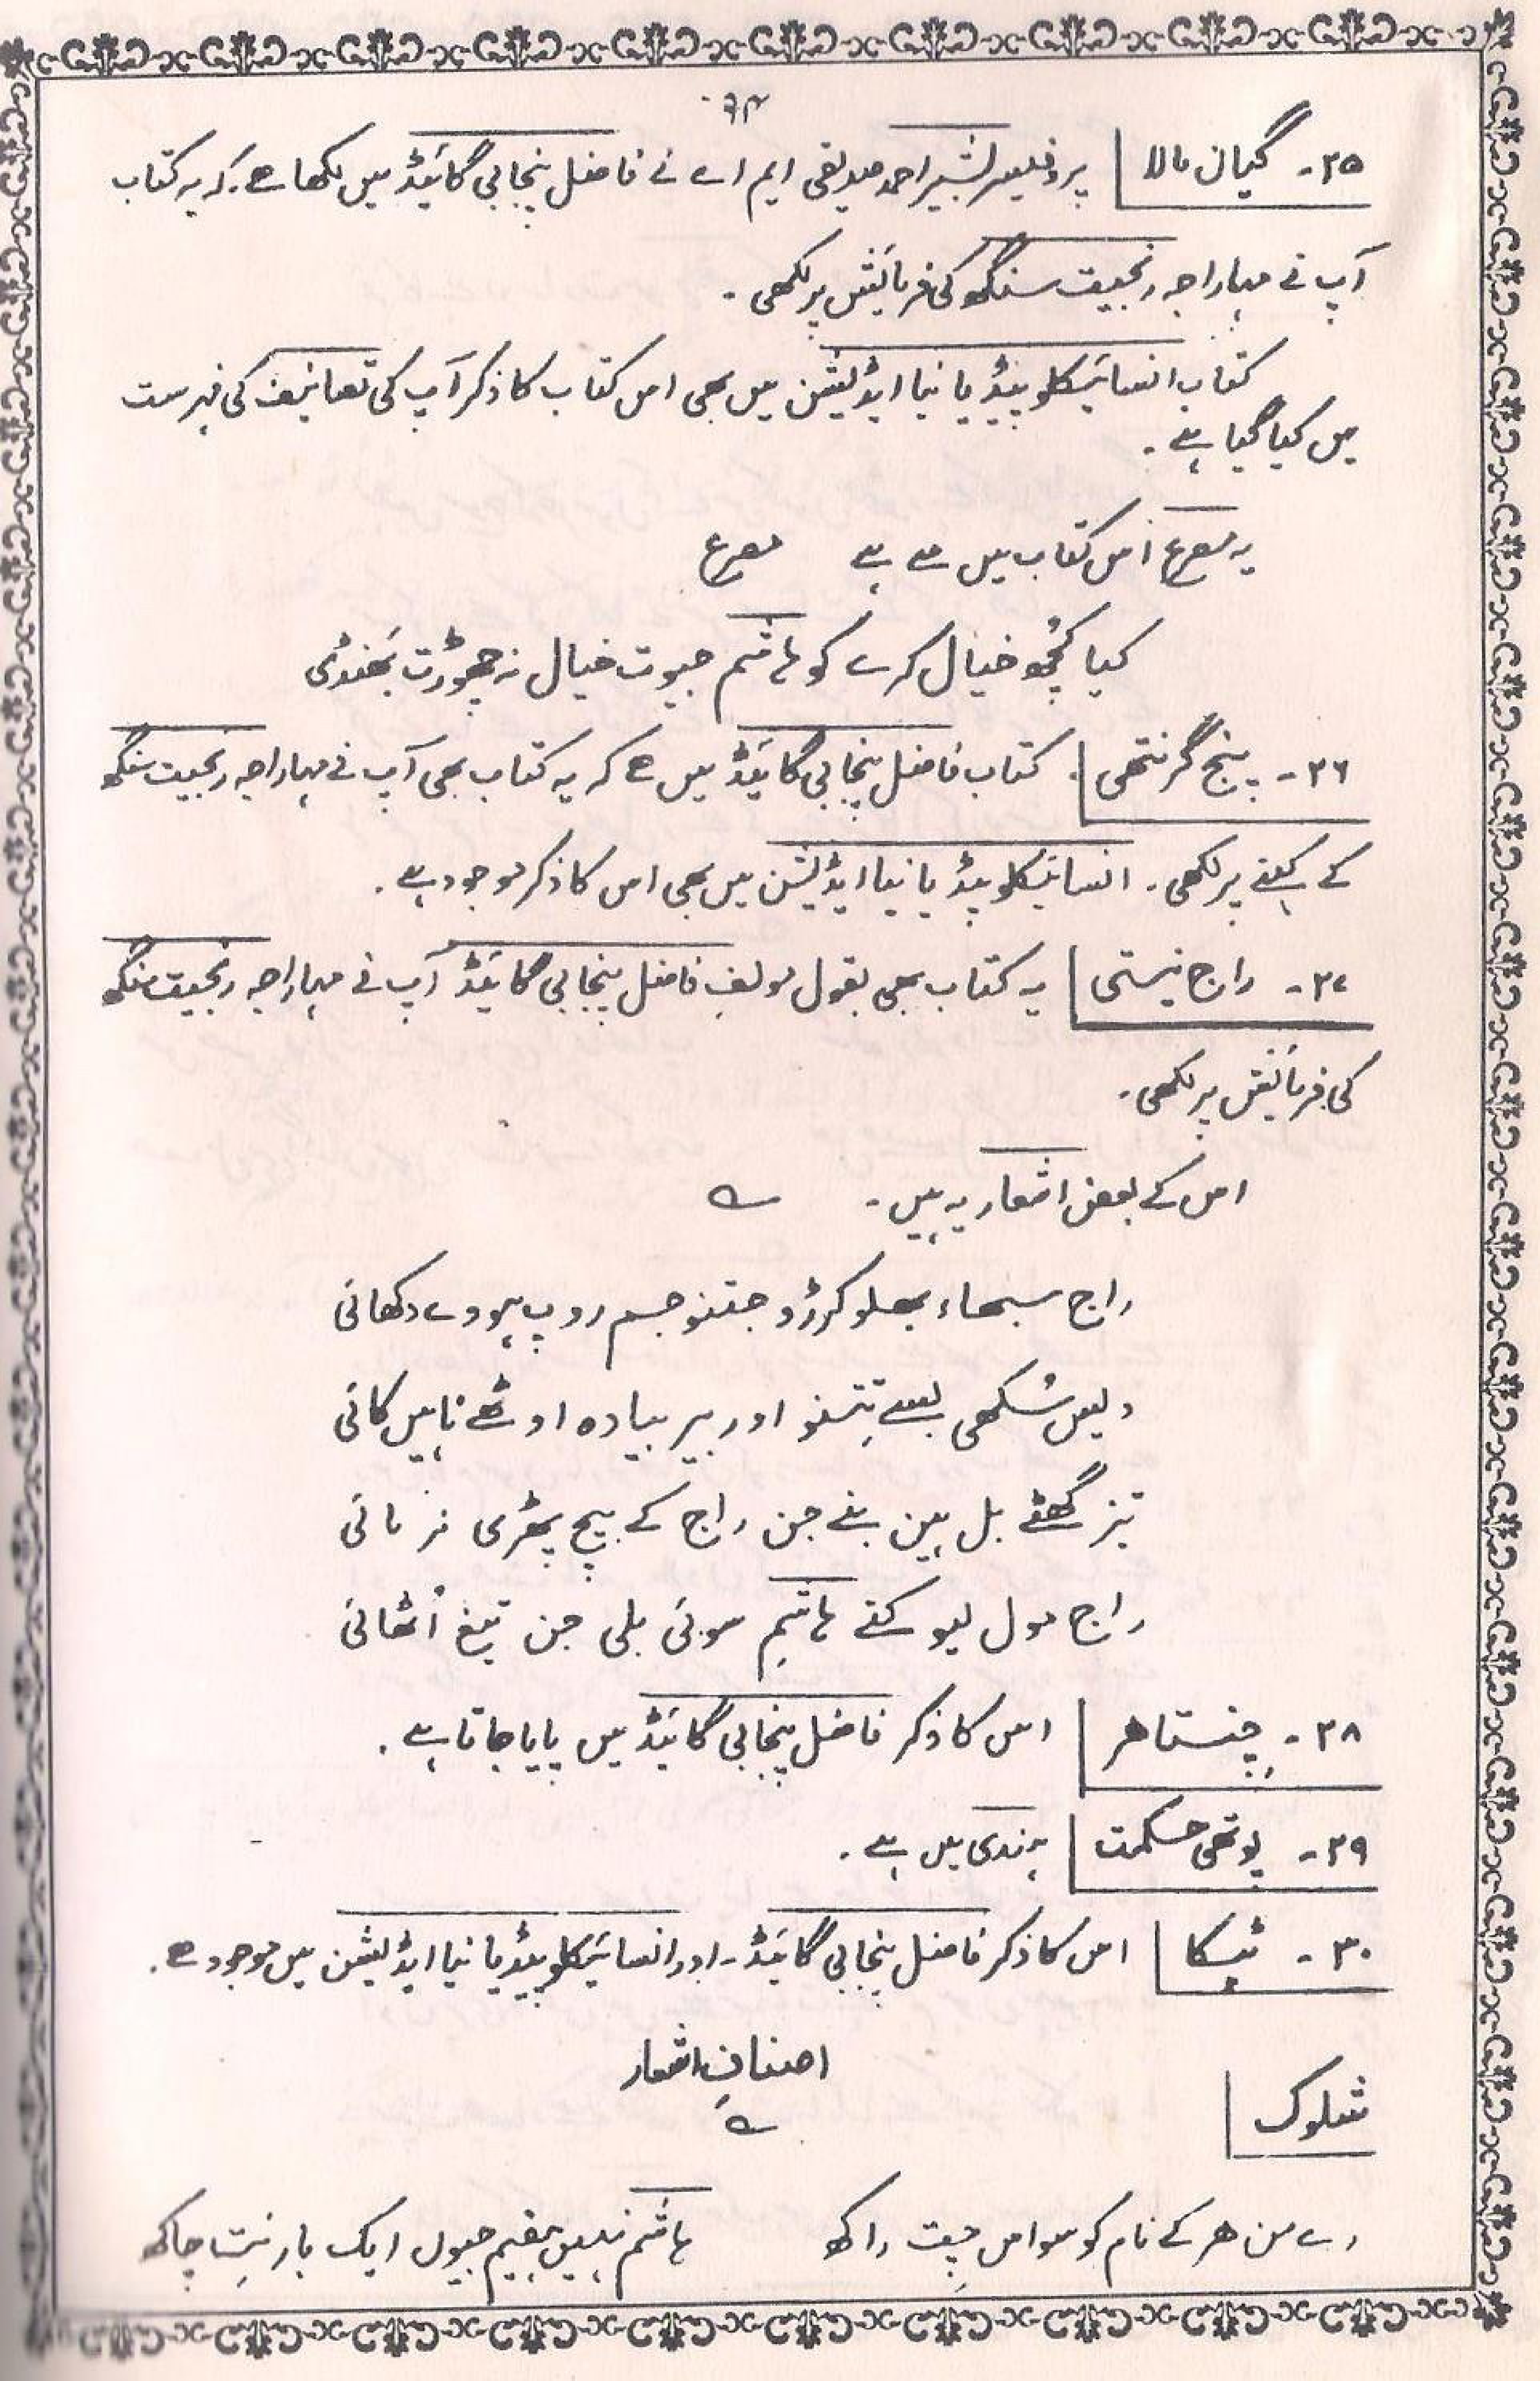 ۶۴
۲۵۔ گیان مالا پروفیسر بشیر احمد صدیقی ایم اے نے فاضل پنجابی گائیڈ میں لکھا ہے۔ کہ یہ کتاب
آپ نے مہاراجہ رنجیت سنگھ کی فرمائش پر لکھی ۔
کتاب انسائیکلو پیڈیا نیا ایڈیشن میں بھی اس کتاب کا ذکر آپ کی تصانیف کی فہرست
میں کیا گیا ہے ۔
یہ مصرع اس کتاب میں سے ہے مصرع
کیا کُچھ خیال کرے کو ہاشم جیوت خیال نہ چھوڑت بھنڈی
۲۶۔ پنج گرنتھی کتاب فاضل پنجابی گائیڈ میں ہے کہ یہ کتاب بھی آپ نے مہاراجہ رنجیت سنگھ
کے کہنے پر لکھی ۔ انسائیکلو پیڈیا نیا ایڈیشن میں بھی اس کا ذکر موجود ہے ۔
۲۷۔ راج نیتی یہ کتاب بھی بقول مولفِ فاضل پنجابی گائیڈ آپ نے مہاراجہ رنجیت سنگھ
کی فرمائش پر لکھی ۔
اس کے بعض اشعار یہ ہیں ۔ ؎
راج سبھاء بھلو کرڑو جتنو جسم روپ ہووے دکھائی
دیس سُکھی بسے تِتنو اور بیر بیادہ اوٹھے ناہیں کائی
تیز گھٹے بل ہین بنے جن راج کے بیچ پھڑی نرمائی
راج مول لیو کتے ہاشم سوئی بلی جن تیغ اُٹھائی
۲۸۔ چِنتاہر اس کا ذکر فاضل پنجابی گائیڈ میں پایا جاتا ہے ۔
۲۹۔ پوتھی حکمت ہندی میں ہے ۔
۳۰۔ ٹیکا اس کا ذکر فاضل پنجابی گائیڈ۔ اور انسائیکلو پیڈیا نیا ایڈیشن میں موجود ہے ۔
اصنافِ اشعار
شلوک ؎
رے من ہر کے نام کو سواس چِت راکھ ہاشم نہیں مقیم جیول ایک بار نِت چاکھ